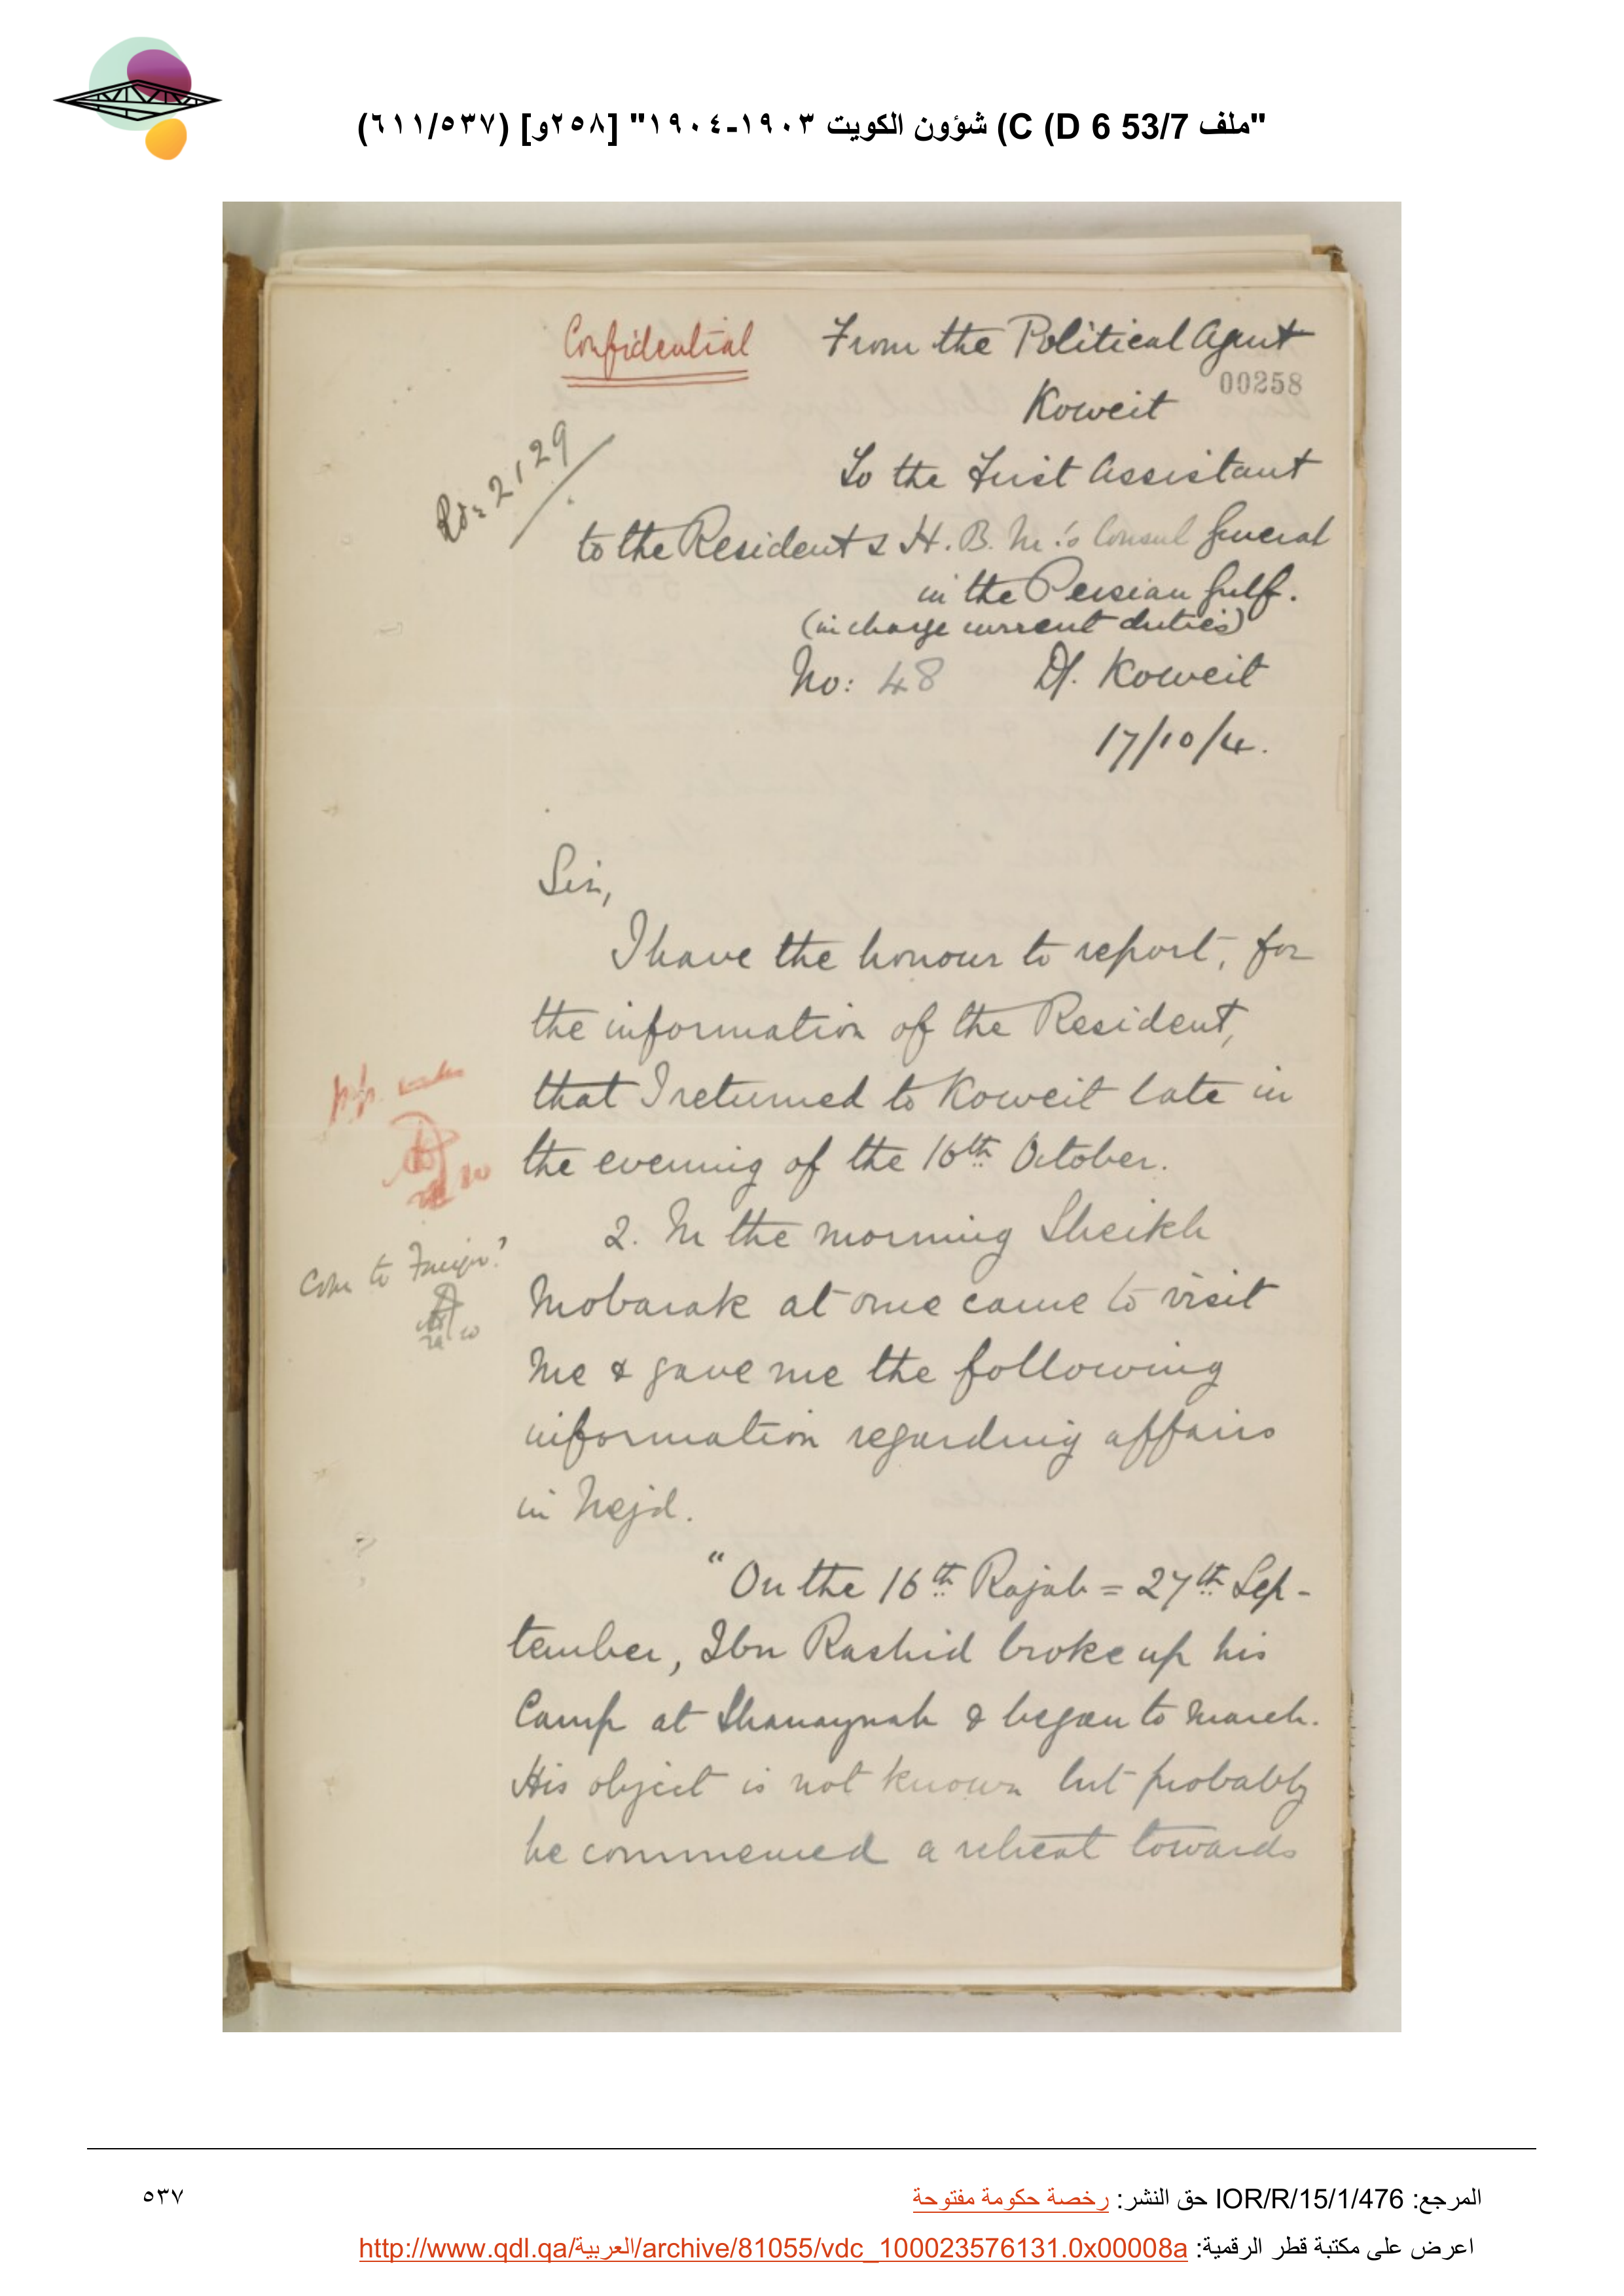 "ملف 53/7 C (D 6) شؤون الكويت ١٩٠٣-١٩٠٤" [٢٥٨و] (٦١١/٥٣٧)
Confidential
From the Political Agent
00258
Koweit
To the First Assistant
to the Resident & H. B. M.'s Consul General
in the Persian Gulf.
(in charge current duties)
No: 48 Df. Koweit
17/10/4.
2129
Sir,
I have the honour to report, for
the information of the Resident,
that I returned to Koweit late in
the evening of the 16th October.
2. In the morning Sheikh
Mobarak at once came to visit
me & gave me the following
information regarding affairs
in Nejd.
"On the 16th Rajab = 27th Sep-
tember, Ibn Rashid broke up his
Camp at Shanaynah & began to march.
His object is not known but probably
he commenced a retreat towards
Com to Foreign?
المرجع: IOR/R/15/1/476 حق النشر: رخصة حكومة مفتوحة
٥٣٧
اعرض على مكتبة قطر الرقمية: http://www.qdl.qa/العربية/archive/81055/vdc_100023576131.0x00008a